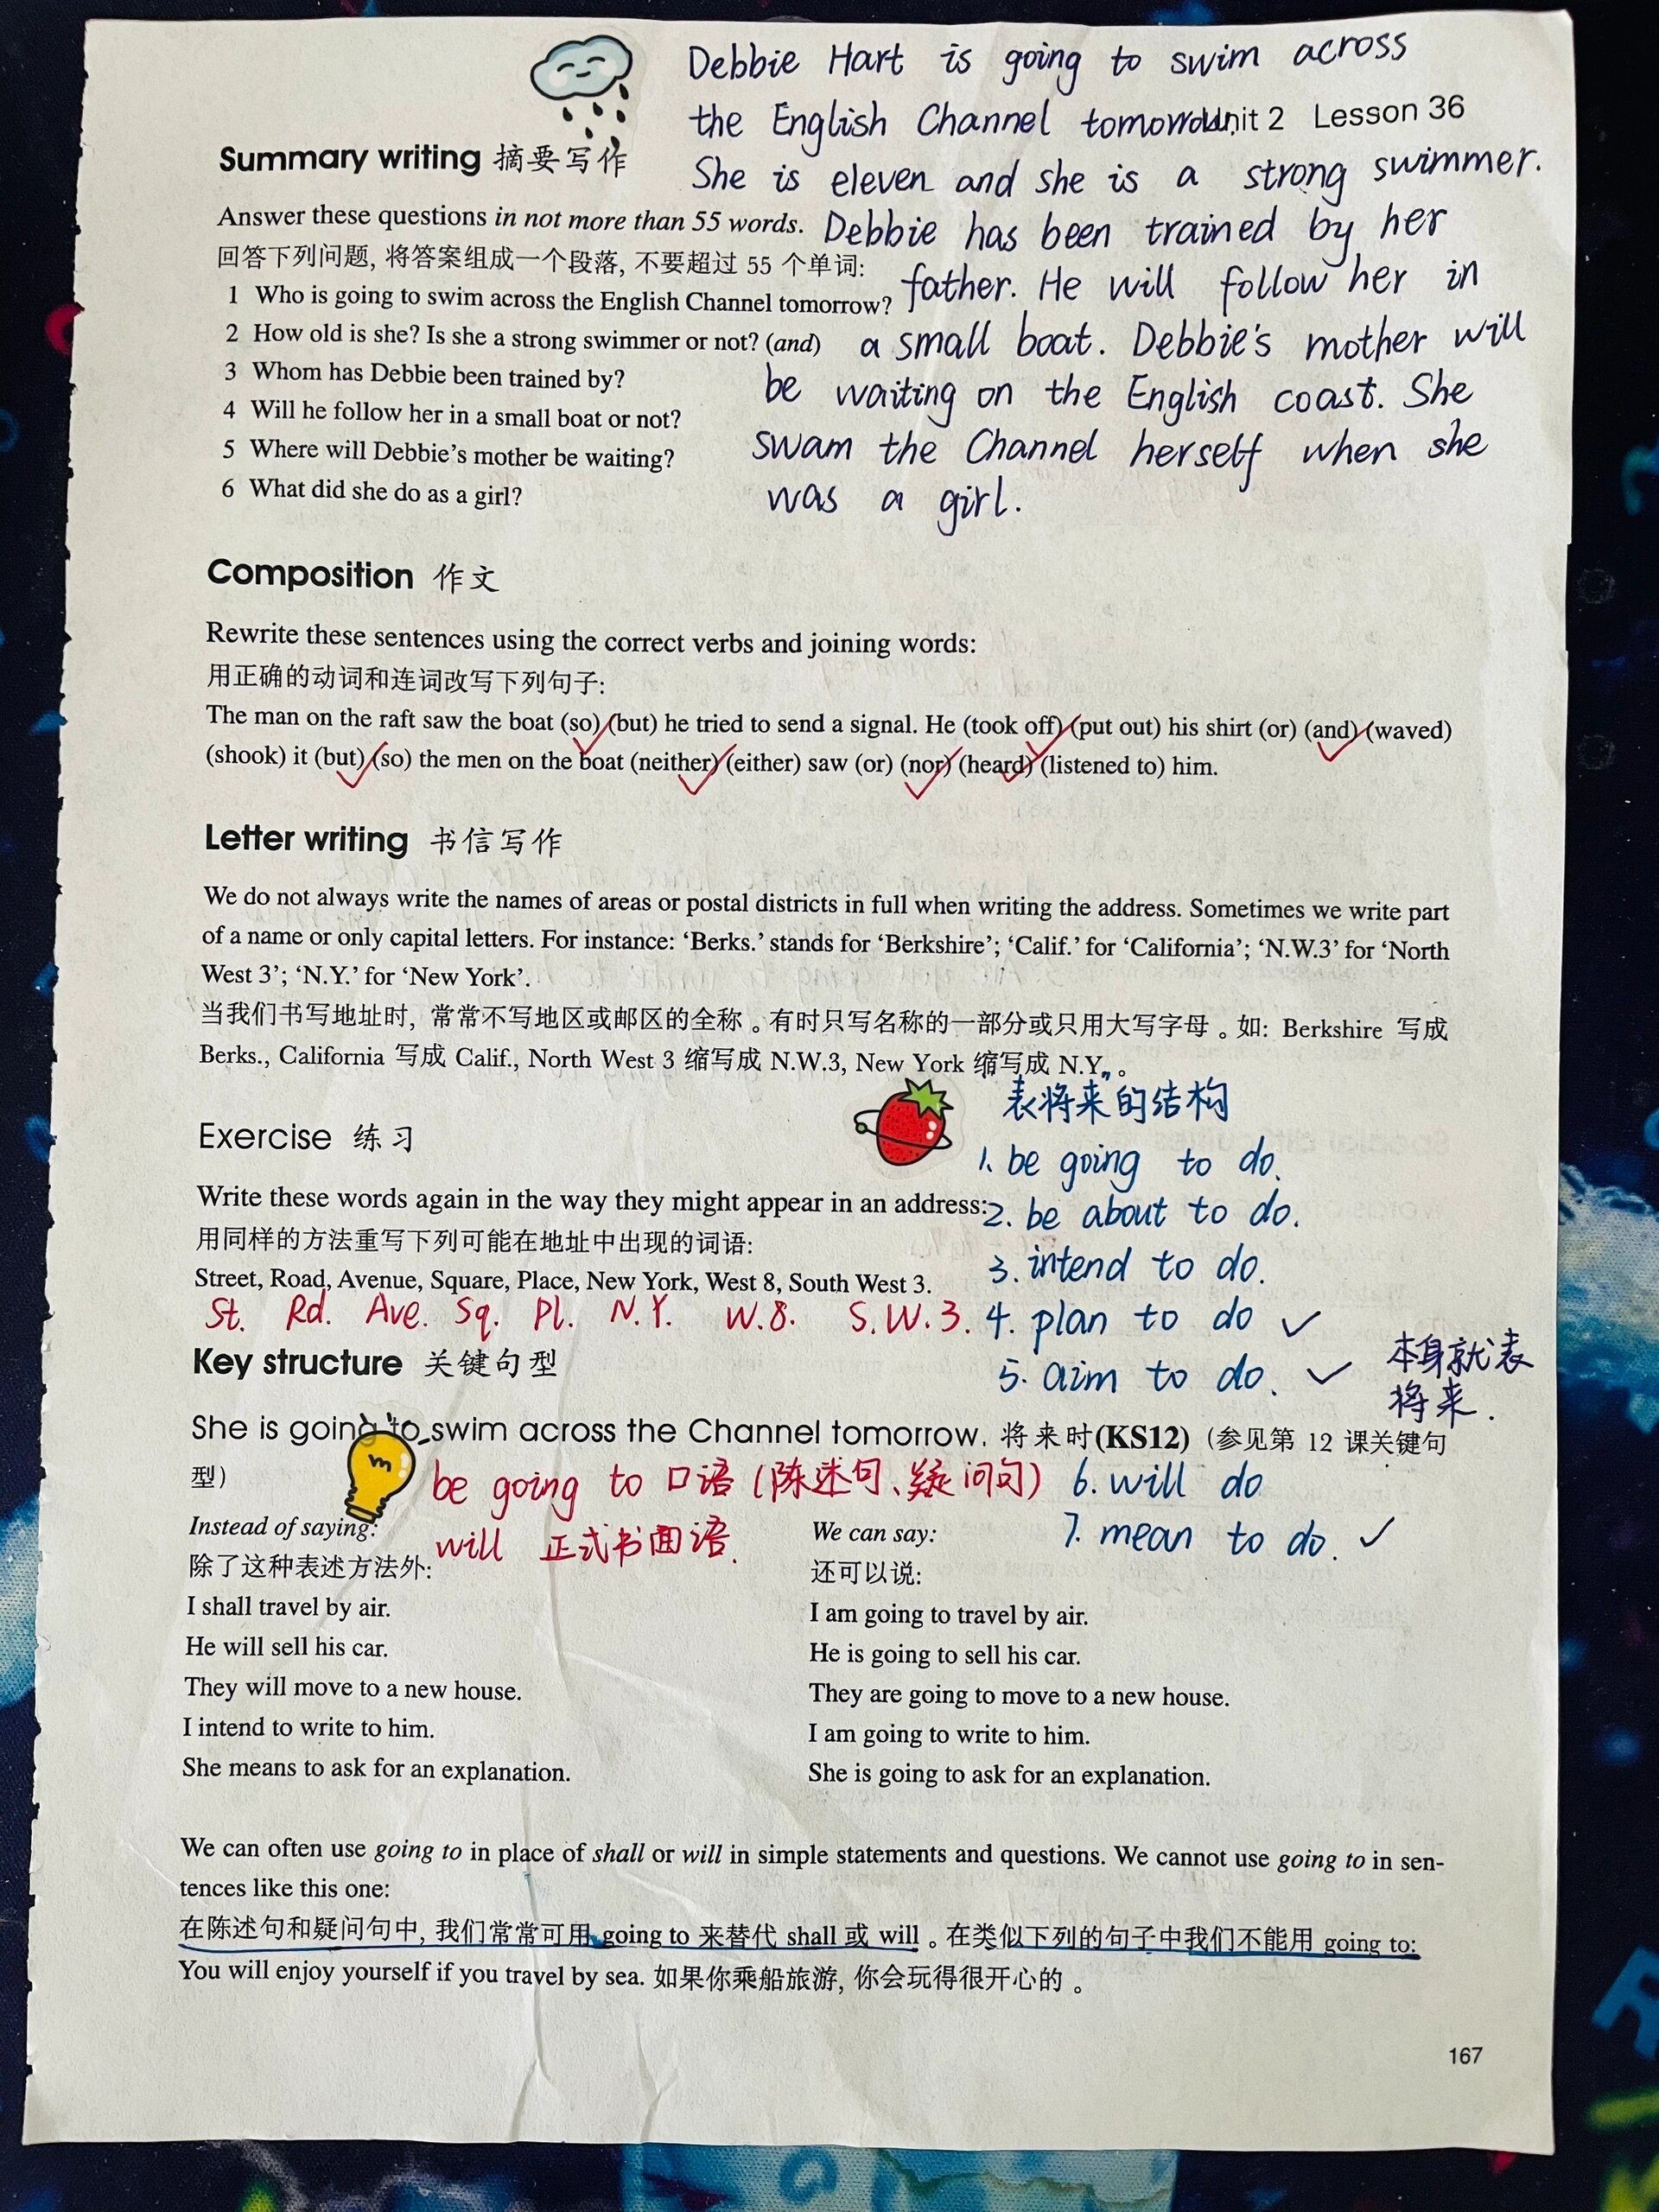 Debbie Hart is going to swim across
the English Channel tomorrow.
Unit 2 Lesson 36
She is eleven and she is a strong swimmer.
Debbie has been trained by her
father. He will follow her in
a small boat. Debbie's mother will
be waiting on the English coast. She
swam the Channel herself when she
was a girl.
Summary writing 摘要写作
Answer these questions in not more than 55 words.
回答下列问题, 将答案组成一个段落, 不要超过 55 个单词:
1 Who is going to swim across the English Channel tomorrow?
2 How old is she? Is she a strong swimmer or not? (and)
3 Whom has Debbie been trained by?
4 Will he follow her in a small boat or not?
5 Where will Debbie's mother be waiting?
6 What did she do as a girl?
Composition 作文
Rewrite these sentences using the correct verbs and joining words:
用正确的动词和连词改写下列句子:
The man on the raft saw the boat (so) (but) he tried to send a signal. He (took off) (put out) his shirt (or) (and) (waved)
(shook) it (but) (so) the men on the boat (neither) (either) saw (or) (nor) (heard) (listened to) him.
Letter writing 书信写作
We do not always write the names of areas or postal districts in full when writing the address. Sometimes we write part
of a name or only capital letters. For instance: 'Berks.' stands for 'Berkshire'; 'Calif.' for 'California'; 'N.W.3' for 'North
West 3'; 'N.Y.' for 'New York'.
当我们书写地址时, 常常不写地区或邮区的全称。有时只写名称的一部分或只用大写字母。如: Berkshire 写成
Berks., California 写成 Calif., North West 3 缩写成 N.W.3, New York 缩写成 N.Y.。
Exercise 练习
Write these words again in the way they might appear in an address:
用同样的方法重写下列可能在地址中出现的词语:
Street, Road, Avenue, Square, Place, New York, West 8, South West 3.
St. Rd. Ave. Sq. Pl. N.Y. W.8. S.W.3.
表将来的结构
1. be going to do.
2. be about to do.
3. intend to do.
4. plan to do ✓
5. aim to do. ✓
本身就表
将来.
6. will do
7. mean to do. ✓
Key structure 关键句型
She is going to swim across the Channel tomorrow. 将来时(KS12) (参见第 12 课关键句
型)
be going to 口语 (陈述句、疑问句)
will 正式书面语.
Instead of saying:
除了这种表述方法外:
I shall travel by air.
He will sell his car.
They will move to a new house.
I intend to write to him.
She means to ask for an explanation.
We can say:
还可以说:
I am going to travel by air.
He is going to sell his car.
They are going to move to a new house.
I am going to write to him.
She is going to ask for an explanation.
We can often use going to in place of shall or will in simple statements and questions. We cannot use going to in sen-
tences like this one:
在陈述句和疑问句中, 我们常常可用 going to 来替代 shall 或 will。在类似下列的句子中我们不能用 going to:
You will enjoy yourself if you travel by sea. 如果你乘船旅游, 你会玩得很开心的。
167